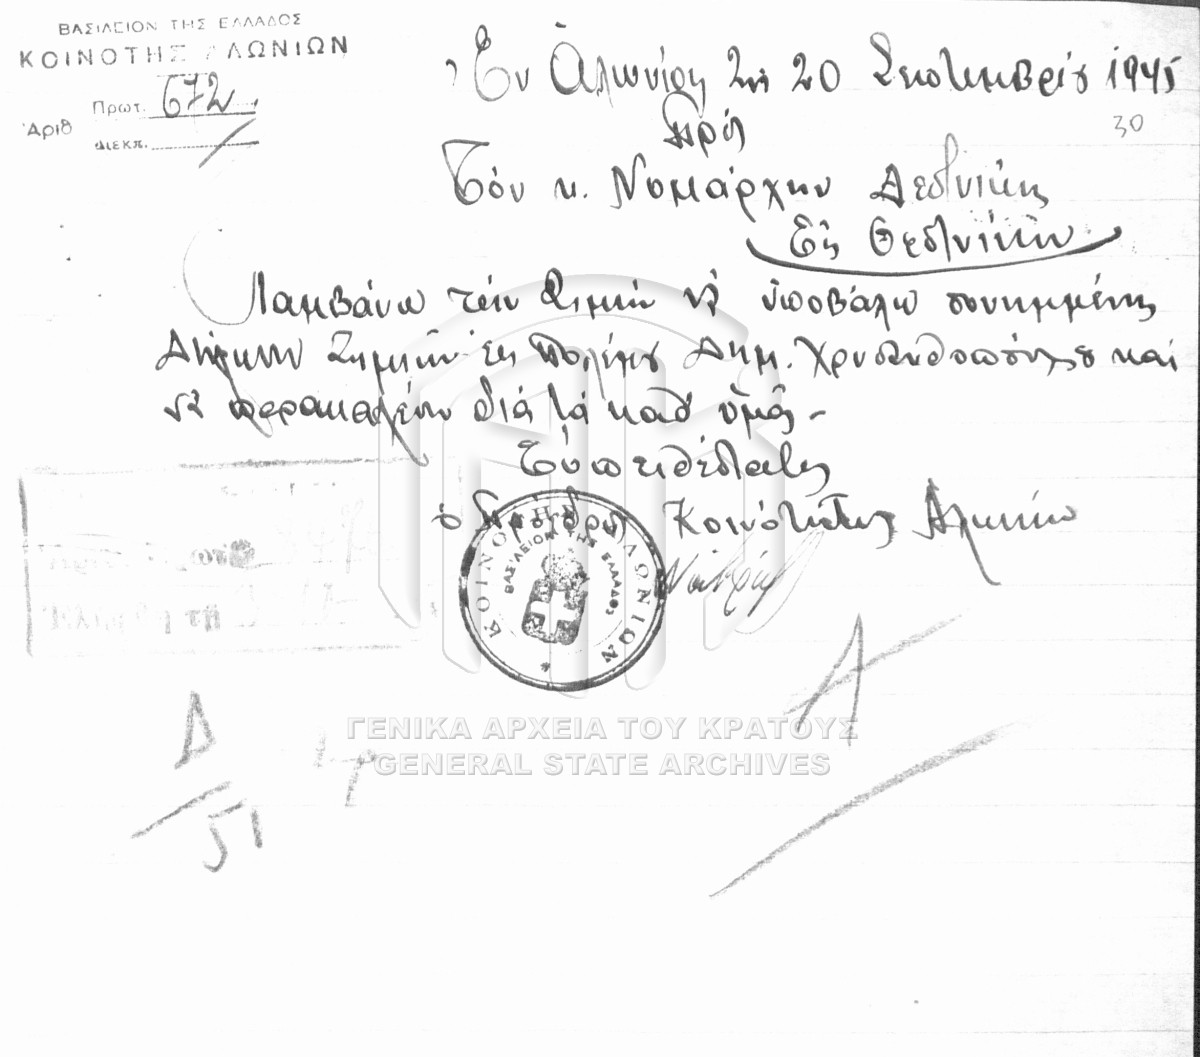 ΒΑΣΙΛΕΙΟΝ ΤΗΣ ΕΛΛΑΔΟΣ
ΚΟΙΝΟΤΗΣ ΑΛΩΝΙΩΝ
Ἀριθ Πρωτ. 672
Διεκπ.
Ἐν Ἁλωνίοις τῇ 20 Σεπτεμβρίου 1945
30
Πρός
Τόν κ. Νομάρχην Θεσ/νίκης
Εἰς Θεσ/νίκην
Λαμβάνω τήν τιμήν νά ὑποβάλω συνημμένως
Δήλωσιν Ζημιῶν τοῦ πολίτου Δημ. καί
νά παρακαλέσω διά τά καθ' ὑμᾶς.-
Εὐπειθέστατος
ὁ Πρόεδρος Κοινότητος Ἁλωνίων
ΚΟΙΝΟΤΗΣ ΑΛΩΝΙΩΝ
ΒΑΣΙΛΕΙΟΝ ΤΗΣ ΕΛΛΑΔΟΣ
Α
Δ
51
ΓΕΝΙΚΑ ΑΡΧΕΙΑ ΤΟΥ ΚΡΑΤΟΥΣ
GENERAL STATE ARCHIVES